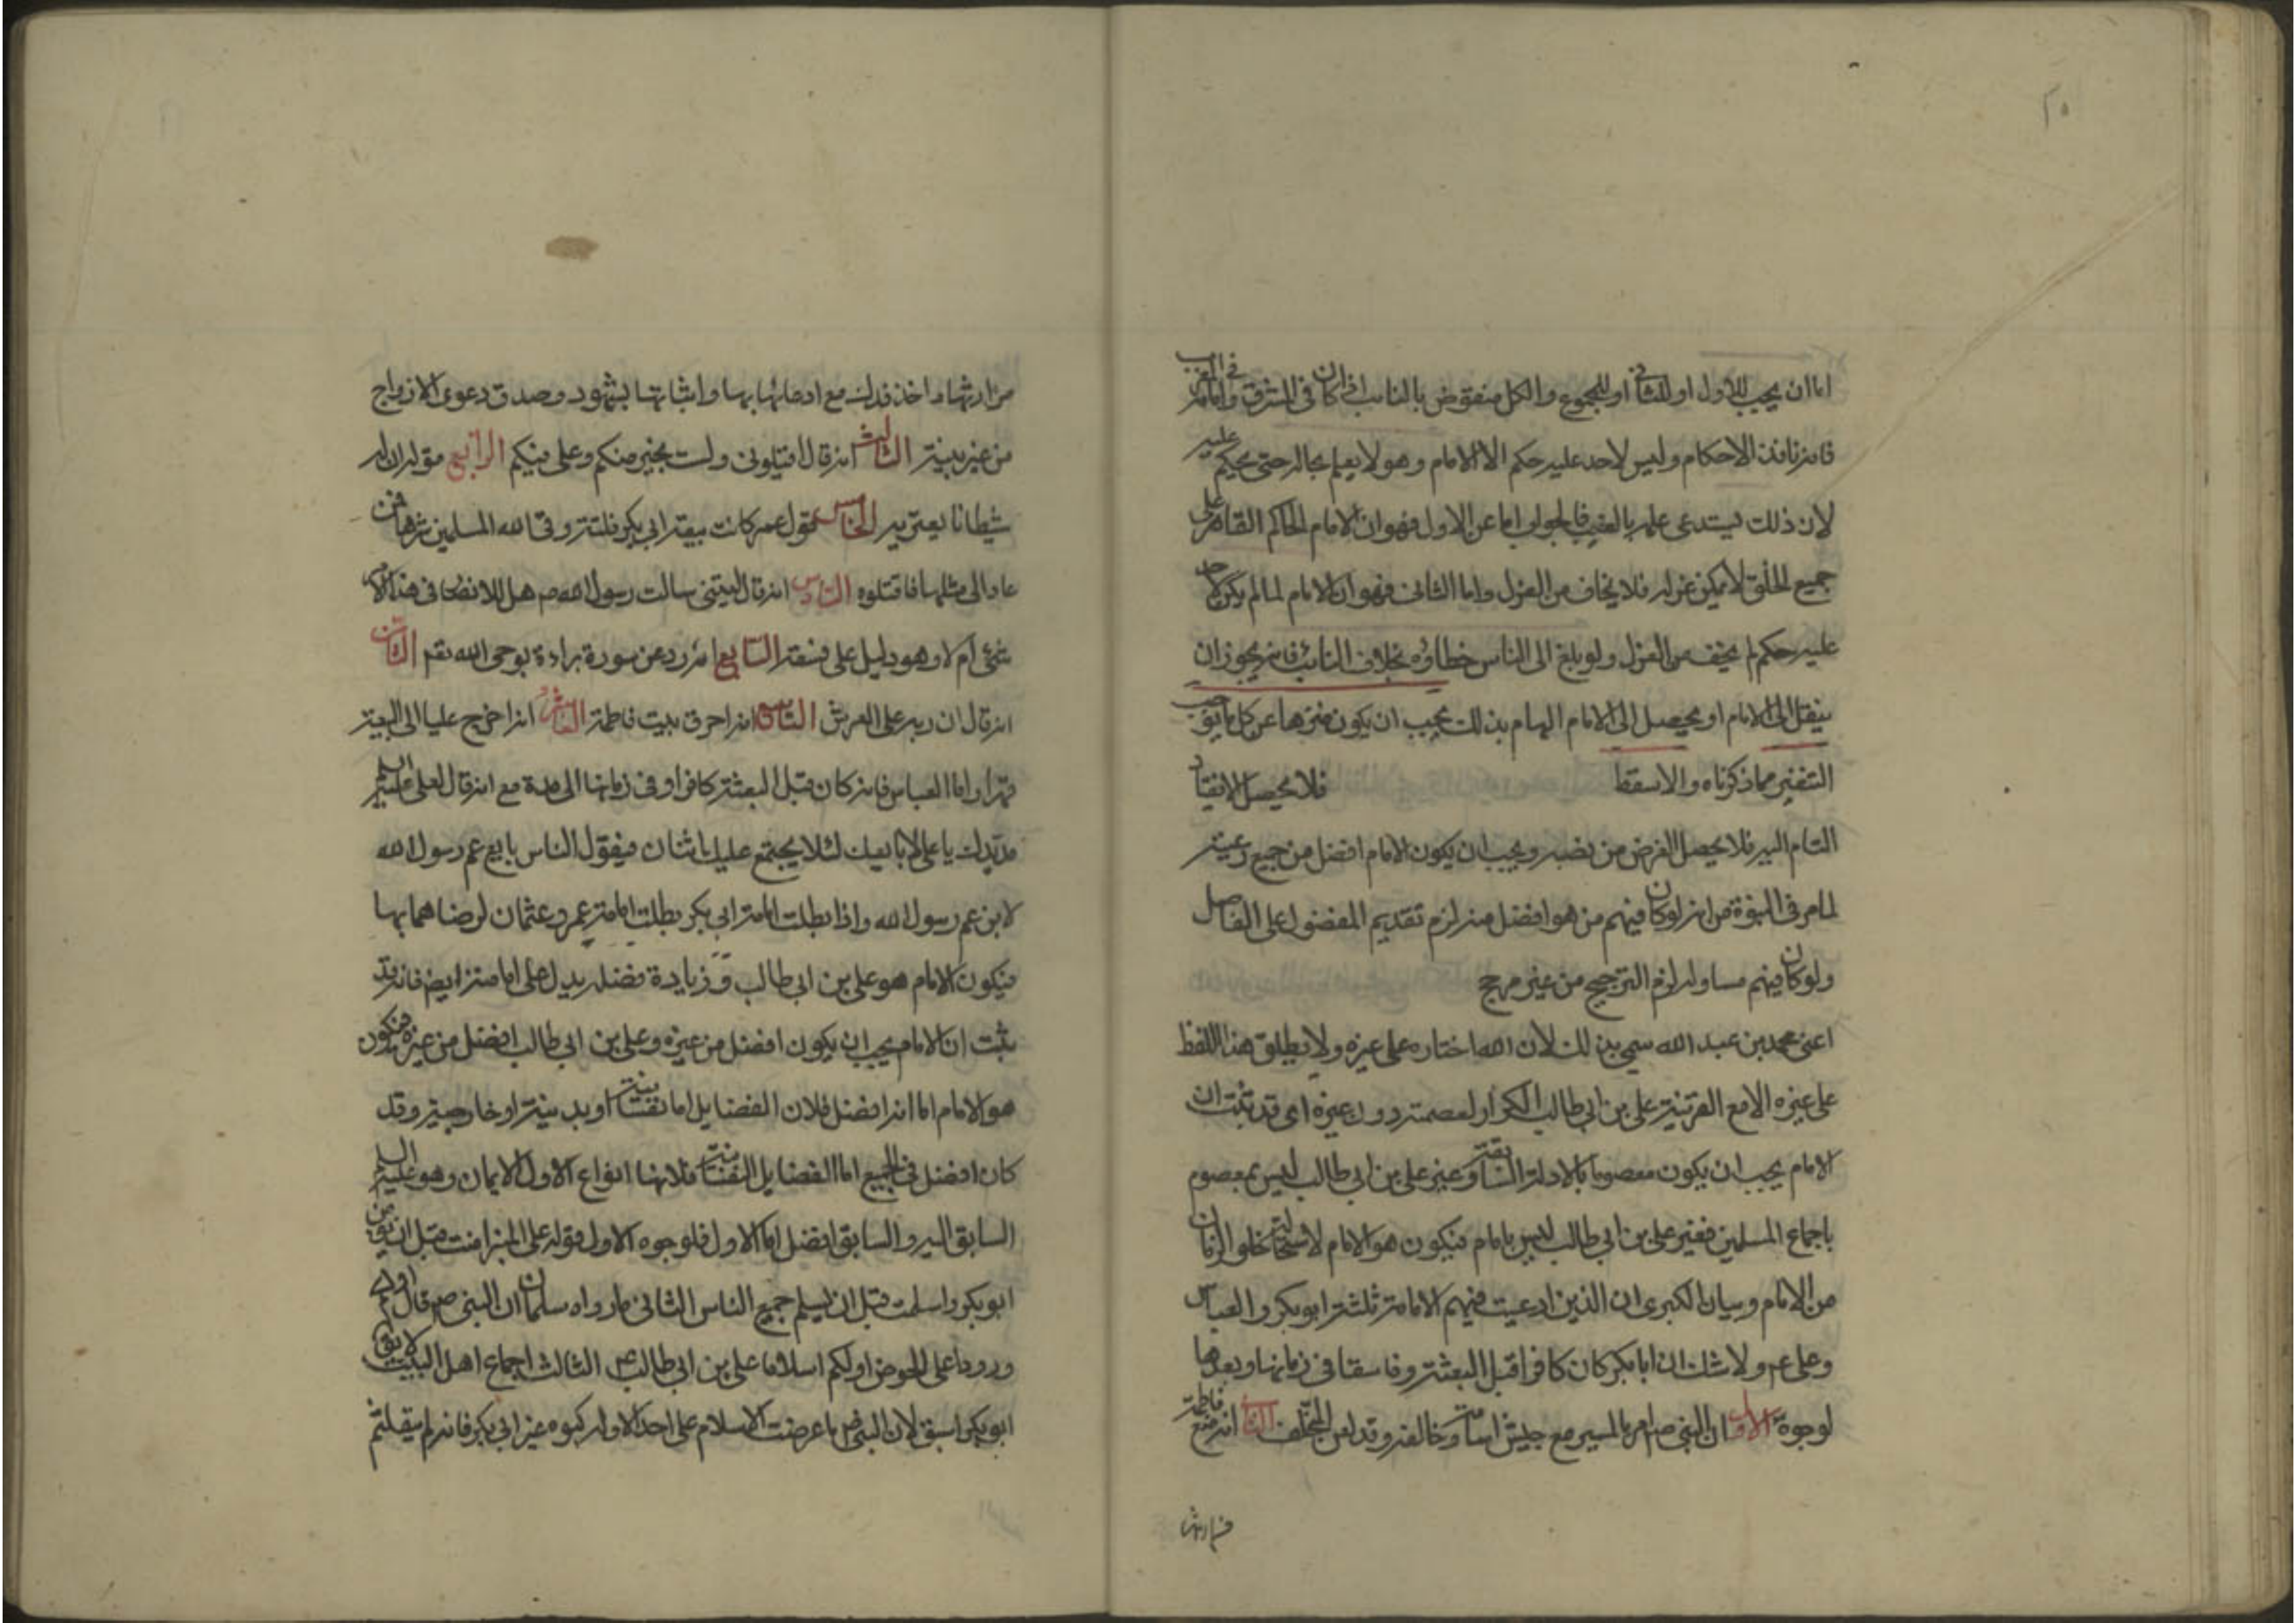 ٢٥
اما ان يجب للاول او للثانى او للمجموع والكل منقوض بالنايب اذا كان فى المشرق وامامه فى المغرب
فانه نافذ الاحكام وليس لاحد عليه حكم الا الامام وهو لا يعلم بحاله حتى يحكم عليه
لان ذلك يستدعى علمه بالغيب فالجواب اما عن الاول فهو ان الامام الحاكم القاهر على
جميع الخلق لا يمكن عزله فلا يخاف من العزل واما الثانى فهو ان الامام لما لم يكن لاحد
عليه حكم لم يخف من العزل ولو بلغ الى الناس خطاؤه بخلاف النائب فانه يجوز ان
ينقل الى الامام او يحصل الى الامام الهام بذلك يجب ان يكون منزها عن كل ما يوجب
التنفير مما ذكرناه والا سقط فلا يحصل الانقياد
التام اليه فلا يحصل الغرض من نصبه ويجب ان يكون الامام افضل من جميع رعيته
لما مر فى النبوة من انه لو كان فيهم من هو افضل منه لزم تقديم المفضول على الفاضل
ولو كان فيهم مساو له لزم الترجيح من غير مرجح
اعنى محمد بن عبد الله سمى بذلك لان الله اختاره على غيره ولا يطلق هذا اللفظ
على غيره الا مع القرينة على بن ابى طالب الكرار لعصمته دون غيره اى قد ثبت ان
الامام يجب ان يكون معصوما بالادلة السابقة وغير على بن ابى طالب ليس بمعصوم
باجماع المسلمين فغير على بن ابى طالب ليس بامام فيكون هو الامام لاستحالة خلو الزمان
من الامام وبيان الكبرى ان الذين ادعيت فيهم الامامة ثلثة ابو بكر والعباس
وعلى عم ولا شك ان ابا بكر كان كافرا قبل البعثة وفاسقا فى زمانها وبعدها
لوجوه الاول ان النبى ص امر بالمسير مع جيش اسامة وخالفه وقد لعن المتخلف الثانى انه منع فاطمة
من ارثها
من ارثها واخذ فدك مع ادعائها بها واثباتها بشهود وصدق دعوى الازواج
من غير بينة الثالث انه قال اقيلونى ولست بخير منكم وعلى فيكم الرابع قوله ان له
شيطانا يعتريه الخامس قول عمر كانت بيعة ابى بكر فلتة وقى الله المسلمين شرها فمن
عاد الى مثلها فاقتلوه السادس انه قال ليتنى سالت رسول الله ص هل للانصار فى هذا الامر
شئ ام لا وهو دليل على فسقه السابع انه رد عن سورة براءة بوحى الله تعم الثامن
انه قال ان ربه على العرش التاسع انه احرق بيت فاطمة العاشر انه اخرج عليا الى البيعة
قهرا واما العباس فانه كان قبل البعثة كافرا وفى زمانها الى مدة مع انه قال لعلى عليه السلم
مد يدك يا على لابايعك لئلا يجتمع عليك اثنان فيقول الناس بايع عم رسول الله
لابن عم رسول الله واذا بطلت امامة ابى بكر بطلت امامة عمر وعثمان لرضاهما بها
فيكون الامام هو على بن ابى طالب وزيادة فضله يدل على امامته ايضا فانه قد
ثبت ان الامام يجب ان يكون افضل من غيره وعلى بن ابى طالب افضل من غيره فيكون
هو الامام اما انه افضل فلان الفضايل اما نفسانية او بدنية او خارجية وقد
كان افضل فى الجميع اما الفضايل النفسانية فلانها انواع الاول الايمان وهو عليه السلم
السابق اليه والسابق افضل اما الاول فلوجوه الاول قوله على المنبر امنت قبل ان يؤمن
ابو بكر واسلمت قبل ان يسلم جميع الناس الثانى ما رواه سلمان ان النبى ص قال اولكم
ورودا على الحوض اولكم اسلاما على بن ابى طالب ع الثالث اجماع اهل البيت لا يق
ابو بكر اسبق لان النبى ص ما عرضت الاسلام على احد الا وله كبوة غير ابى بكر فانه لم يتلعثم